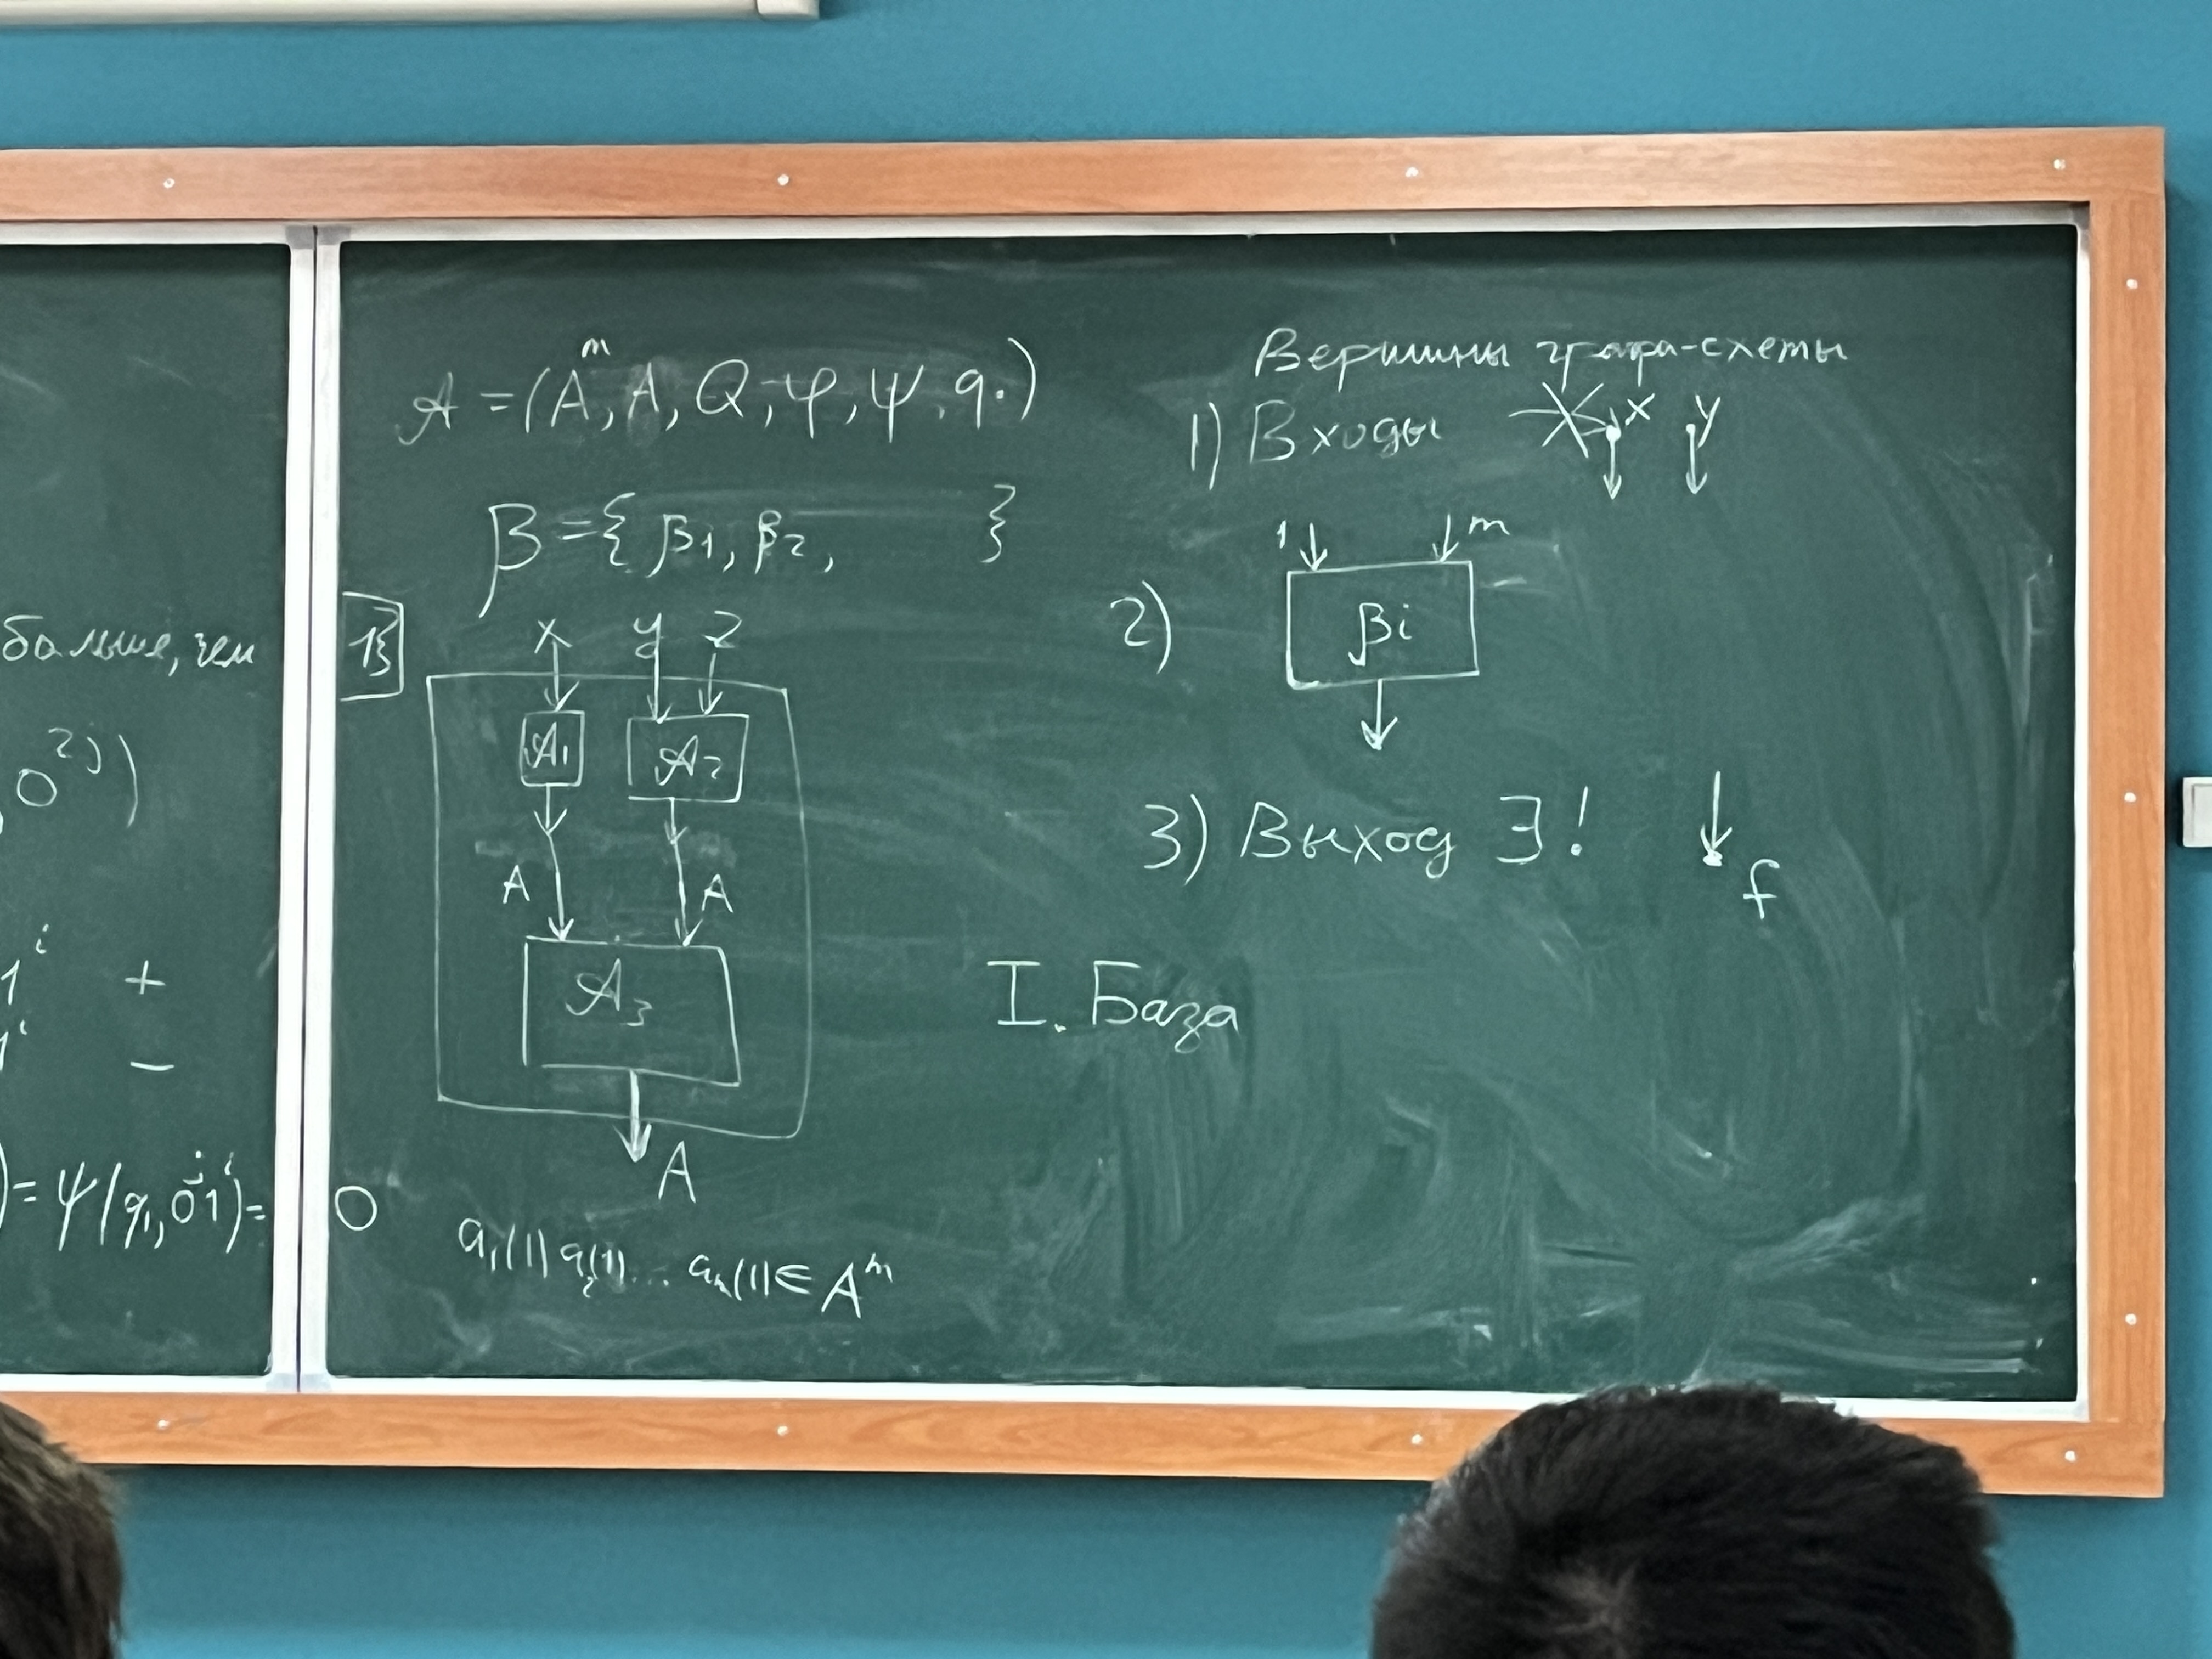 больше, чем
0^{2j})
1^i +
1^i −
)= ψ(q_1, 0^j 1^i)= 0
𝒜 = (A^m, A, Q, φ, ψ, q_0)
B = { β_1, β_2, }
x y z
𝒜_1 𝒜_2
A A
𝒜_3
A
a_1(1) a_2(1) ... a_m(1) ∈ A^m
Вершины графа-схемы
1) Входы x y
1 m
2) β_i
3) Выход ∃! f
I. База